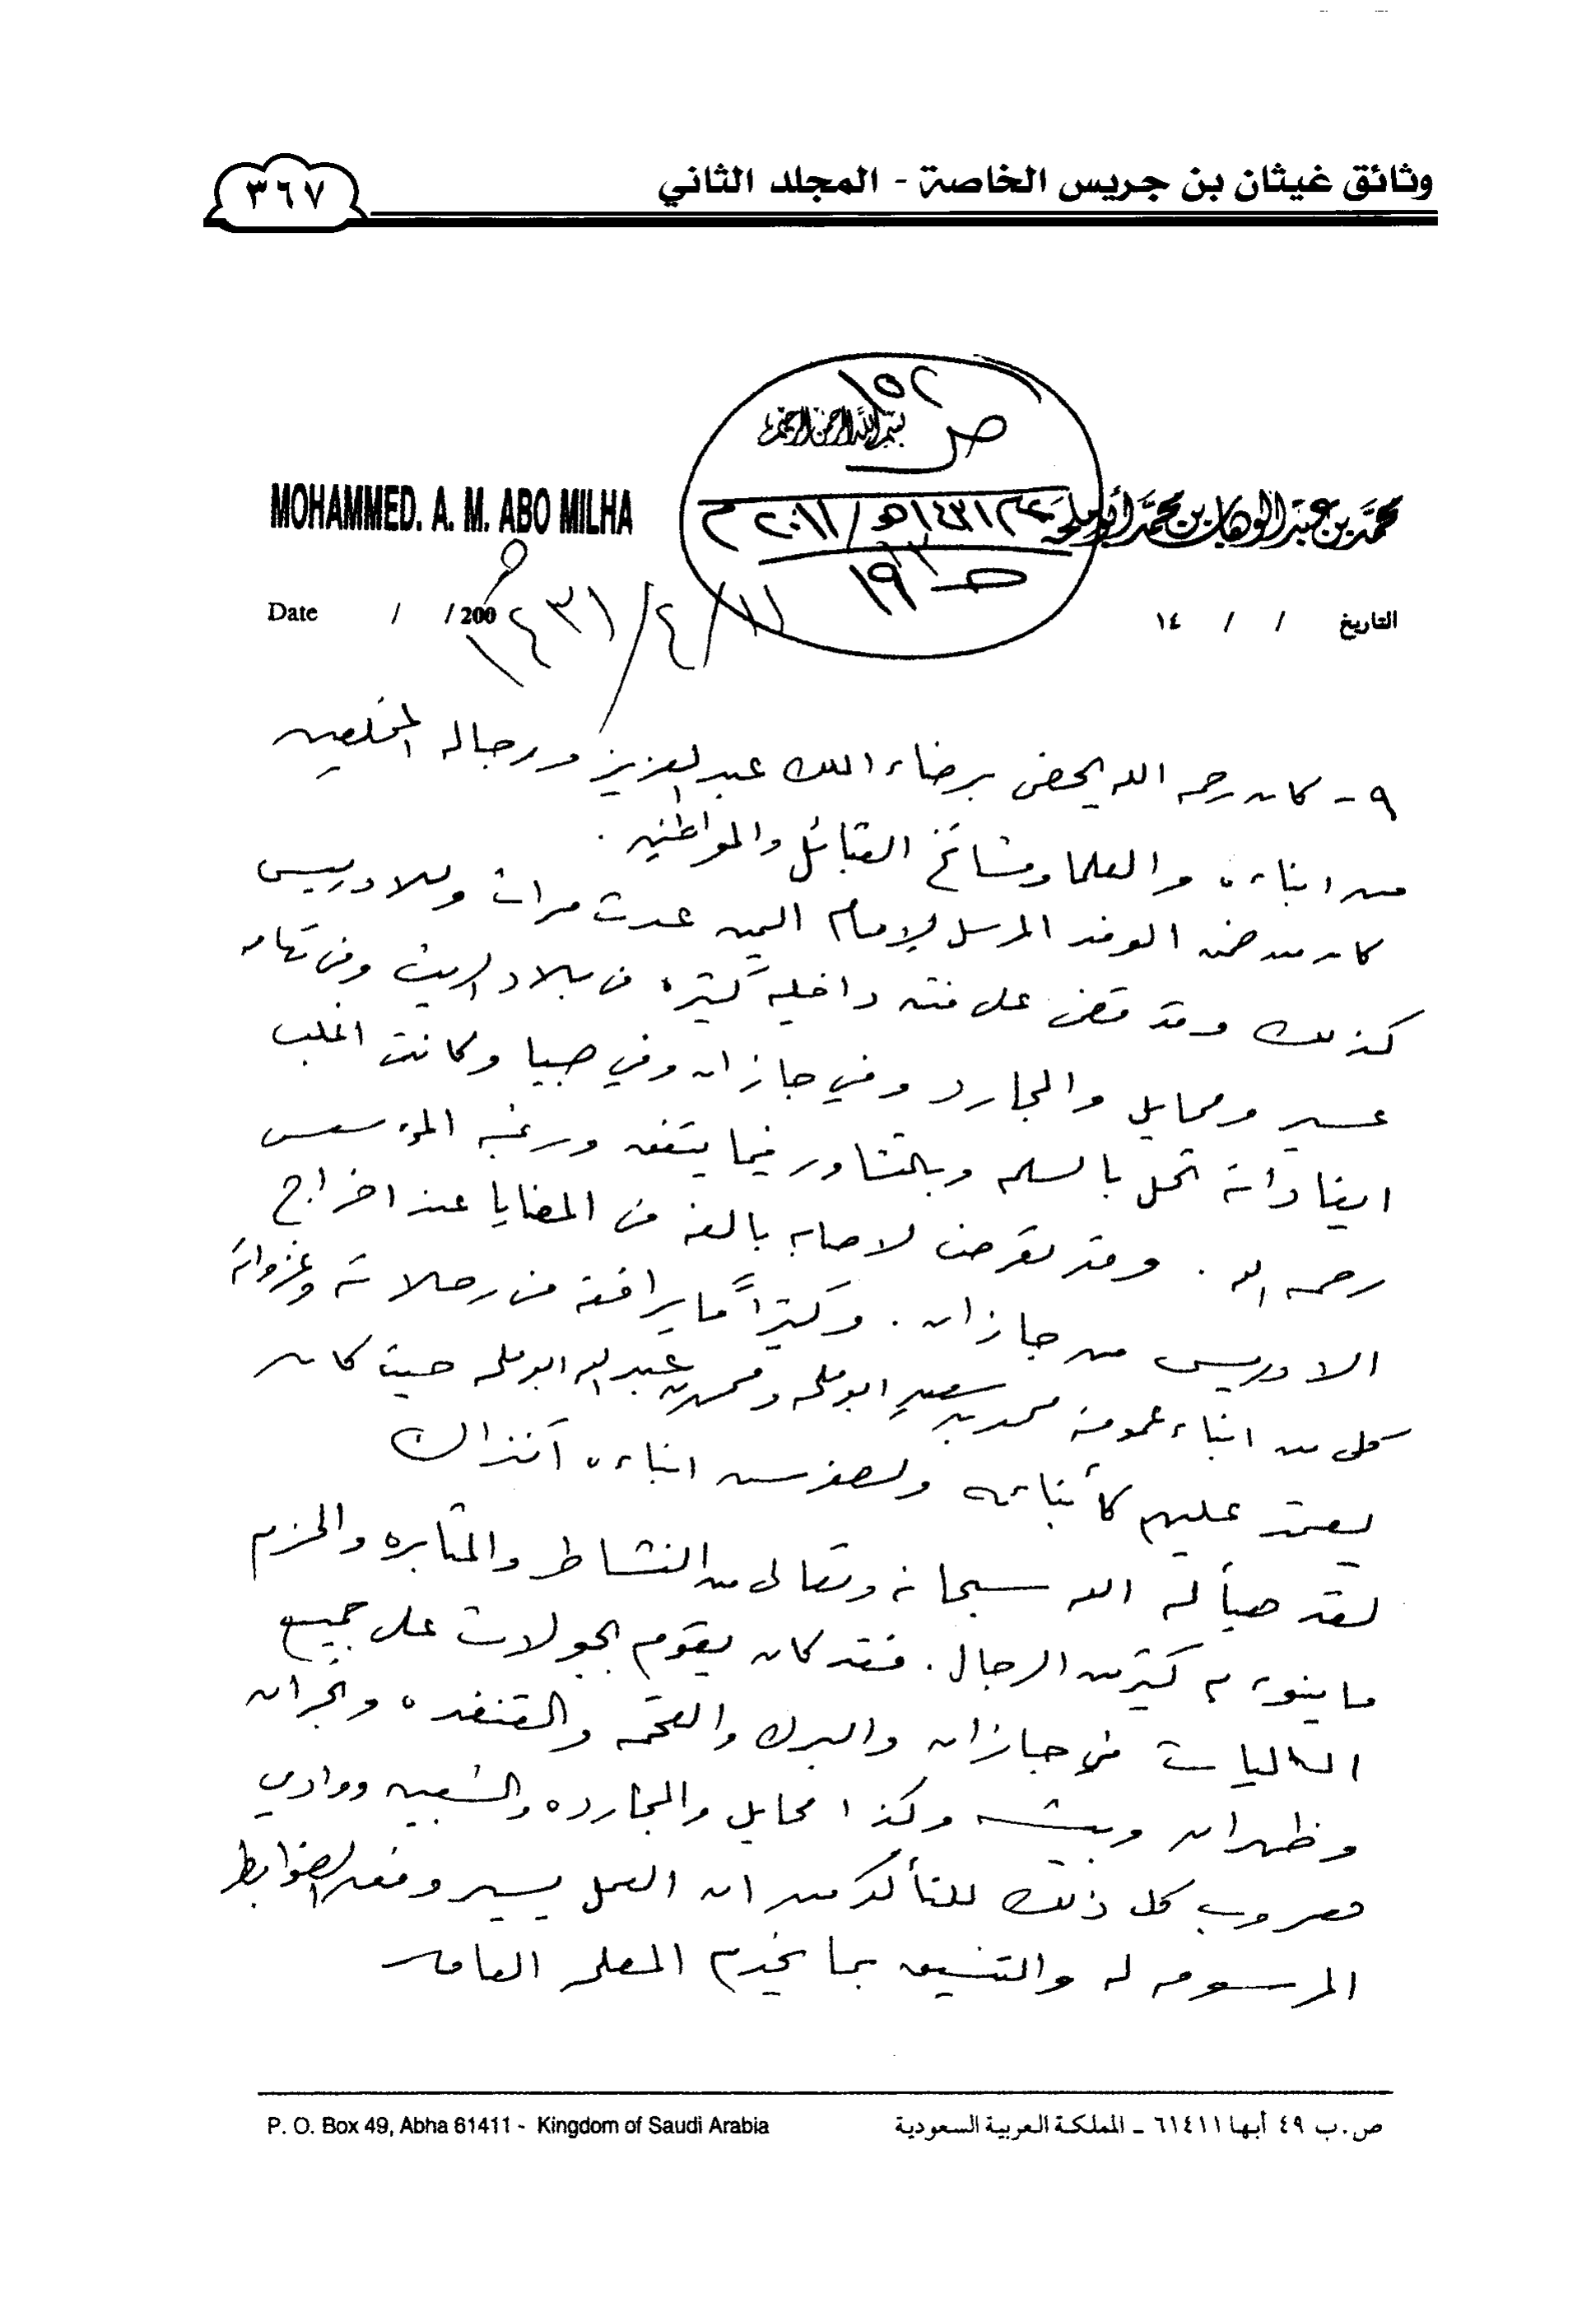 وثائق غيثان بن جريس الخاصة - المجلد الثاني
٣٦٧
ص ١٥٢
بسم الله الرحمن الرحيم
MOHAMMED. A. M. ABO MILHA
محمد بن عبد الوهاب بن محمد أبو ملحة
١٤٣١هـ / ٢٠١١م
ص ١٩
Date / / 200
١٤٣١/٤/١١ هـ
التاريخ / / ١٤
٩ - كان رحمه الله يحضى برضاء الملك عبد العزيز ورجاله المخلصين
من ابناءه والعلما ومشائخ القبائل والمواطنين .
كان من ضمن الوفد المرسل لإمام اليمن عدت مرات وللادريسي
كذلك وقد قضى على فتنه داخليه كثيره في بلاد الريث وفي تهامه
عسير ومحايل والمجارد وفي جازان وفي صبيا وكانت اغلب
ايفاداته تحل بالسلم وبالتشاور فيما يتفق ورغبه المؤسس
رحمه الله . وقد تعرض لاصابه بالغه في المضايا عند اخراج
الادريسي من جازان . وكثيراً ما يرافقه في رحلاته وغزواته
كل من ابناء عمومته محمد بن سعيد ابو ملحه ومحمد بن عبد الله ابو ملحه حيث كان
يعتمد عليهم كأبنائه ولصغر سن ابناءه آنذاك
لقد هيأ له الله سبحانه وتعالى من النشاط والمثابره والحزم
ما ينوء به كثير من الرجال . فقد كان يقوم بجولات على جميع
الماليات في جازان والبرك والقحمه والقنفده ونجران
وظهران وبيشه وكذا محايل والمجارده والشعبين ووادي
كل ذلك للتأكد من ان العمل يسير وفق الضوابط
المرسومه له والتنسيق بما يخدم المصلحه العامه
P. O. Box 49, Abha 61411 - Kingdom of Saudi Arabia
ص.ب ٤٩ أبها ٦١٤١١ ـ المملكة العربية السعودية